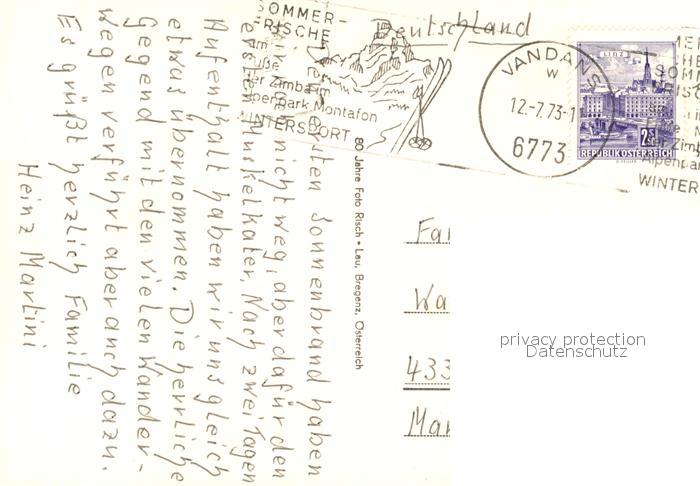 Den ersten Sonnenbrand haben
wir noch nicht weg, aber dafür den
ersten Muskelkater. Nach zwei Tagen
Aufenthalt haben wir uns gleich
etwas übernommen. Die herrliche
Gegend mit den vielen Wander-
wegen verführt aber auch dazu.
Es grüßt herzlich Familie
Heinz Martini
80 Jahre Foto Risch • Lau, Bregenz, Österreich
SOMMER-
FRISCHE
am
Fuße
der Zimba im
Alpenpark Montafon
WINTERSPORT
Deutschland
VANDANS
W
12.-7.73-1
6773
LINZ
2S
REPUBLIK ÖSTERREICH
der Zimb
Alpenpar
WINTER
Fa
Wa
433
Ma
privacy protection
Datenschutz